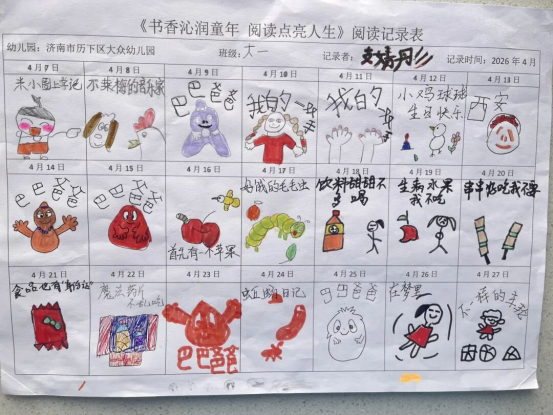 《书香沁润童年 阅读点亮人生》阅读记录表
幼儿园：济南市历下区大众幼儿园 班级：大一 记录者： 记录时间：2026年4月
4月7日 4月8日 4月9日 4月10日 4月11日 4月12日 4月13日
米小圈上学记 不莱梅的音乐家 巴巴爸爸 我的一 我的一 小鸡球球生日快乐 西安
4月14日 4月15日 4月16日 4月17日 4月18日 4月19日 4月20日
巴巴爸爸 巴巴爸爸 首先有一个苹果 好饿的毛毛虫 饮料甜甜不多喝 生病水果我不吃 串串 吃我不要
4月21日 4月22日 4月23日 4月24日 4月25日 4月26日 4月27日
食品也有身份证 魔法药 不乱吃 巴巴爸爸 蚯蚓的日记 巴巴爸爸 在梦里 不一样的主